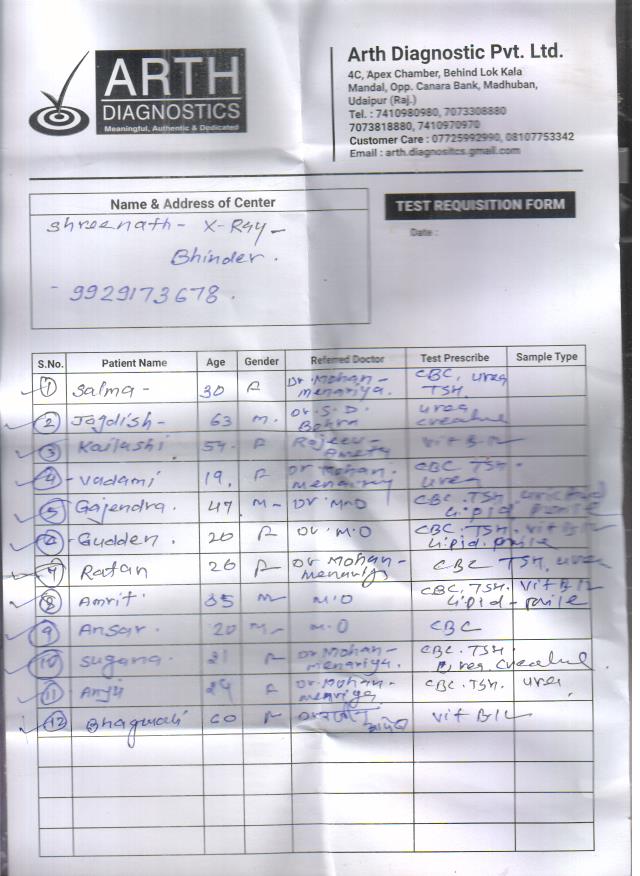 ARTH
DIAGNOSTICS
Meaningful, Authentic & Dedicated
Arth Diagnostic Pvt. Ltd.
4C, Apex Chamber, Behind Lok Kala
Mandal, Opp. Canara Bank, Madhuban,
Udaipur (Raj.)
Tel. : 7410980980, 7073308880
7073818880, 7410970970
Customer Care : 07725992990, 08107753342
Email : arth.diagnositcs.gmail.com
Name & Address of Center
TEST REQUISITION FORM
Shreenath - X-Ray -
Date :
Bhinder.
- 9929173678.
S.No. Patient Name Age Gender Referred Doctor Test Prescribe Sample Type
1 Salma - 30 F Dr. Mohan - menariya. CBC, urea TSH.
2 Jagdish - 63 M. Dr. S. D. urea
3 Kailashi 54. F Rajeev - Vit B12
4 - Vadami 19. F Dr Mohan. CBC TSH. urea
5 Gajendra. 47 M - Dr. M.O CBC. TSH, Lipid
6 - Gudden. 20 F Dr. M.O CBC. TSH. Vit B12 Lipid.
7 Ratan 26 F Dr Mohan - CBC TSH, urea
8 Amrit. 35 M M.O CBC, TSH. Vit B12 Lipid -
9 Ansar. 20 M - M.O CBC
10 Sugana. 21 F Dr Mohan - menariya. CBC. TSH.
11 Anju 24 F Dr. Mohan - CBC. TSH. urea
12 60 F Vit B12